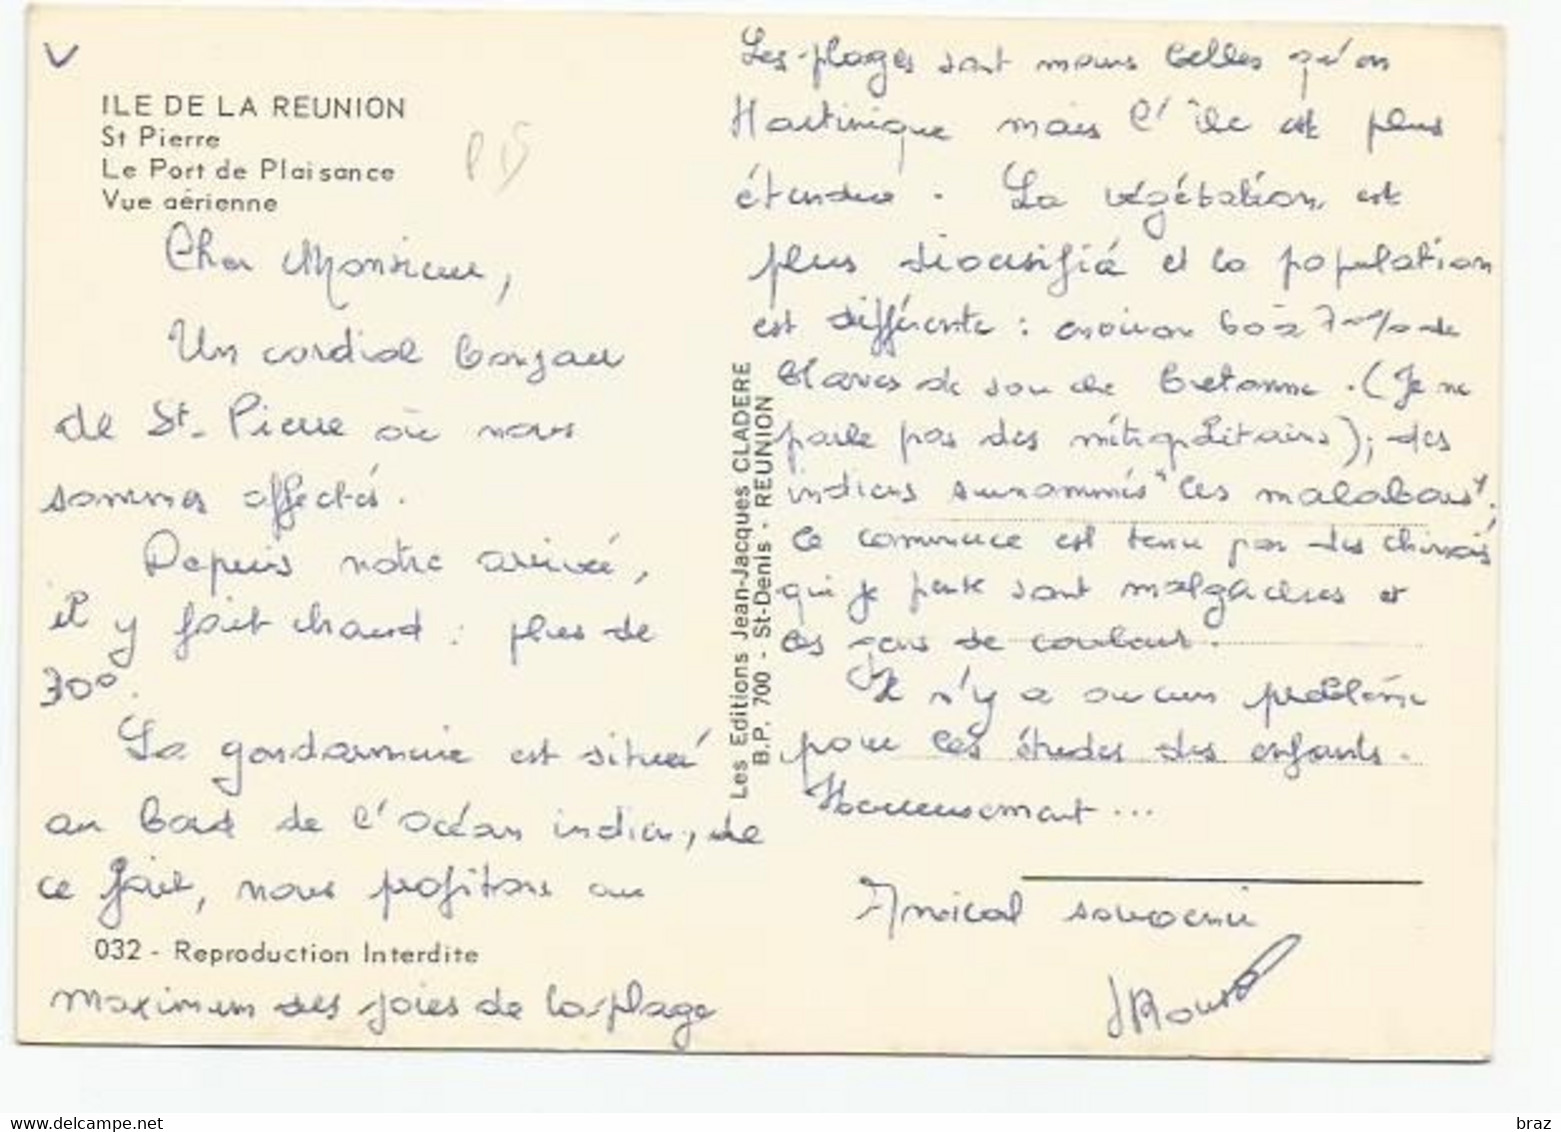 V
ILE DE LA REUNION
St Pierre
Le Port de Plaisance
Vue aérienne
Cher Monsieur,
Un cordial bonjour
de St. Pierre où nous
sommes affectés.
Depuis notre arrivée,
il y fait chaud : plus de
30°.
La gendarmerie est située
au bord de l'Océan indien, de
ce fait, nous profitons au
032 - Reproduction Interdite
maximum des joies de la plage
Les Editions Jean-Jacques CLADERE
B.P. 700 - St-Denis - REUNION
Les plages sont moins belles qu'en
Martinique mais l'île est plus
étendue. La végétation est
plus diversifiée et la population
est différente : environ 60 à 70% de
blancs de souche bretonne. (Je ne
parle pas des métropolitains); des
indiens surnommés "les malabars",
le commerce est tenu par des chinois
qui je pense sont malgaches et
les gens de couleur.
Il n'y a aucun problème
pour les études des enfants.
Heureusement ...
Amical souvenir
braz